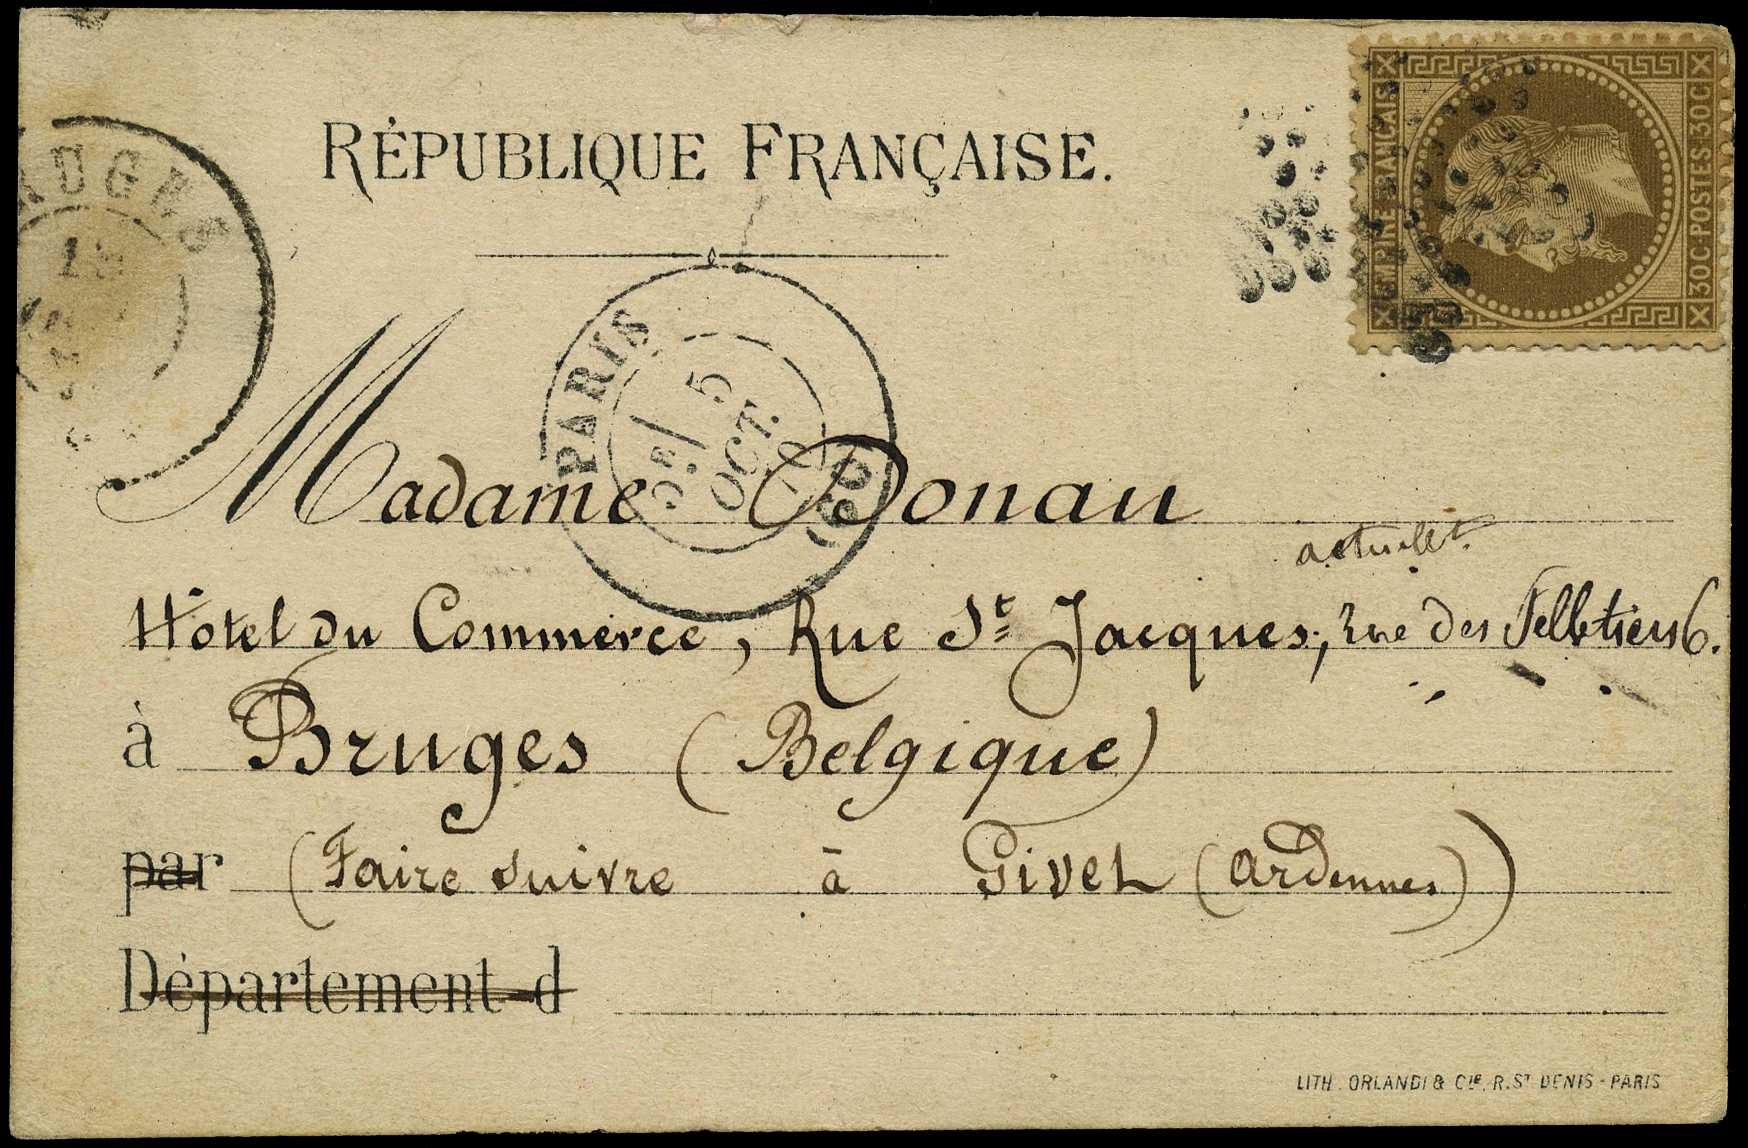 RÉPUBLIQUE FRANÇAISE.
EMPIRE FRANÇAIS
30C·POSTES·30C
PARIS
5
OCT.
(60)
Madame Donau
actuellet.
Hôtel du Commerce, Rue St Jacques, rue des Pelletiers 6.
à Bruges (Belgique)
par (Faire suivre à Givet (Ardennes))
Département d
LITH. ORLANDI & Cie, R. St DENIS - PARIS